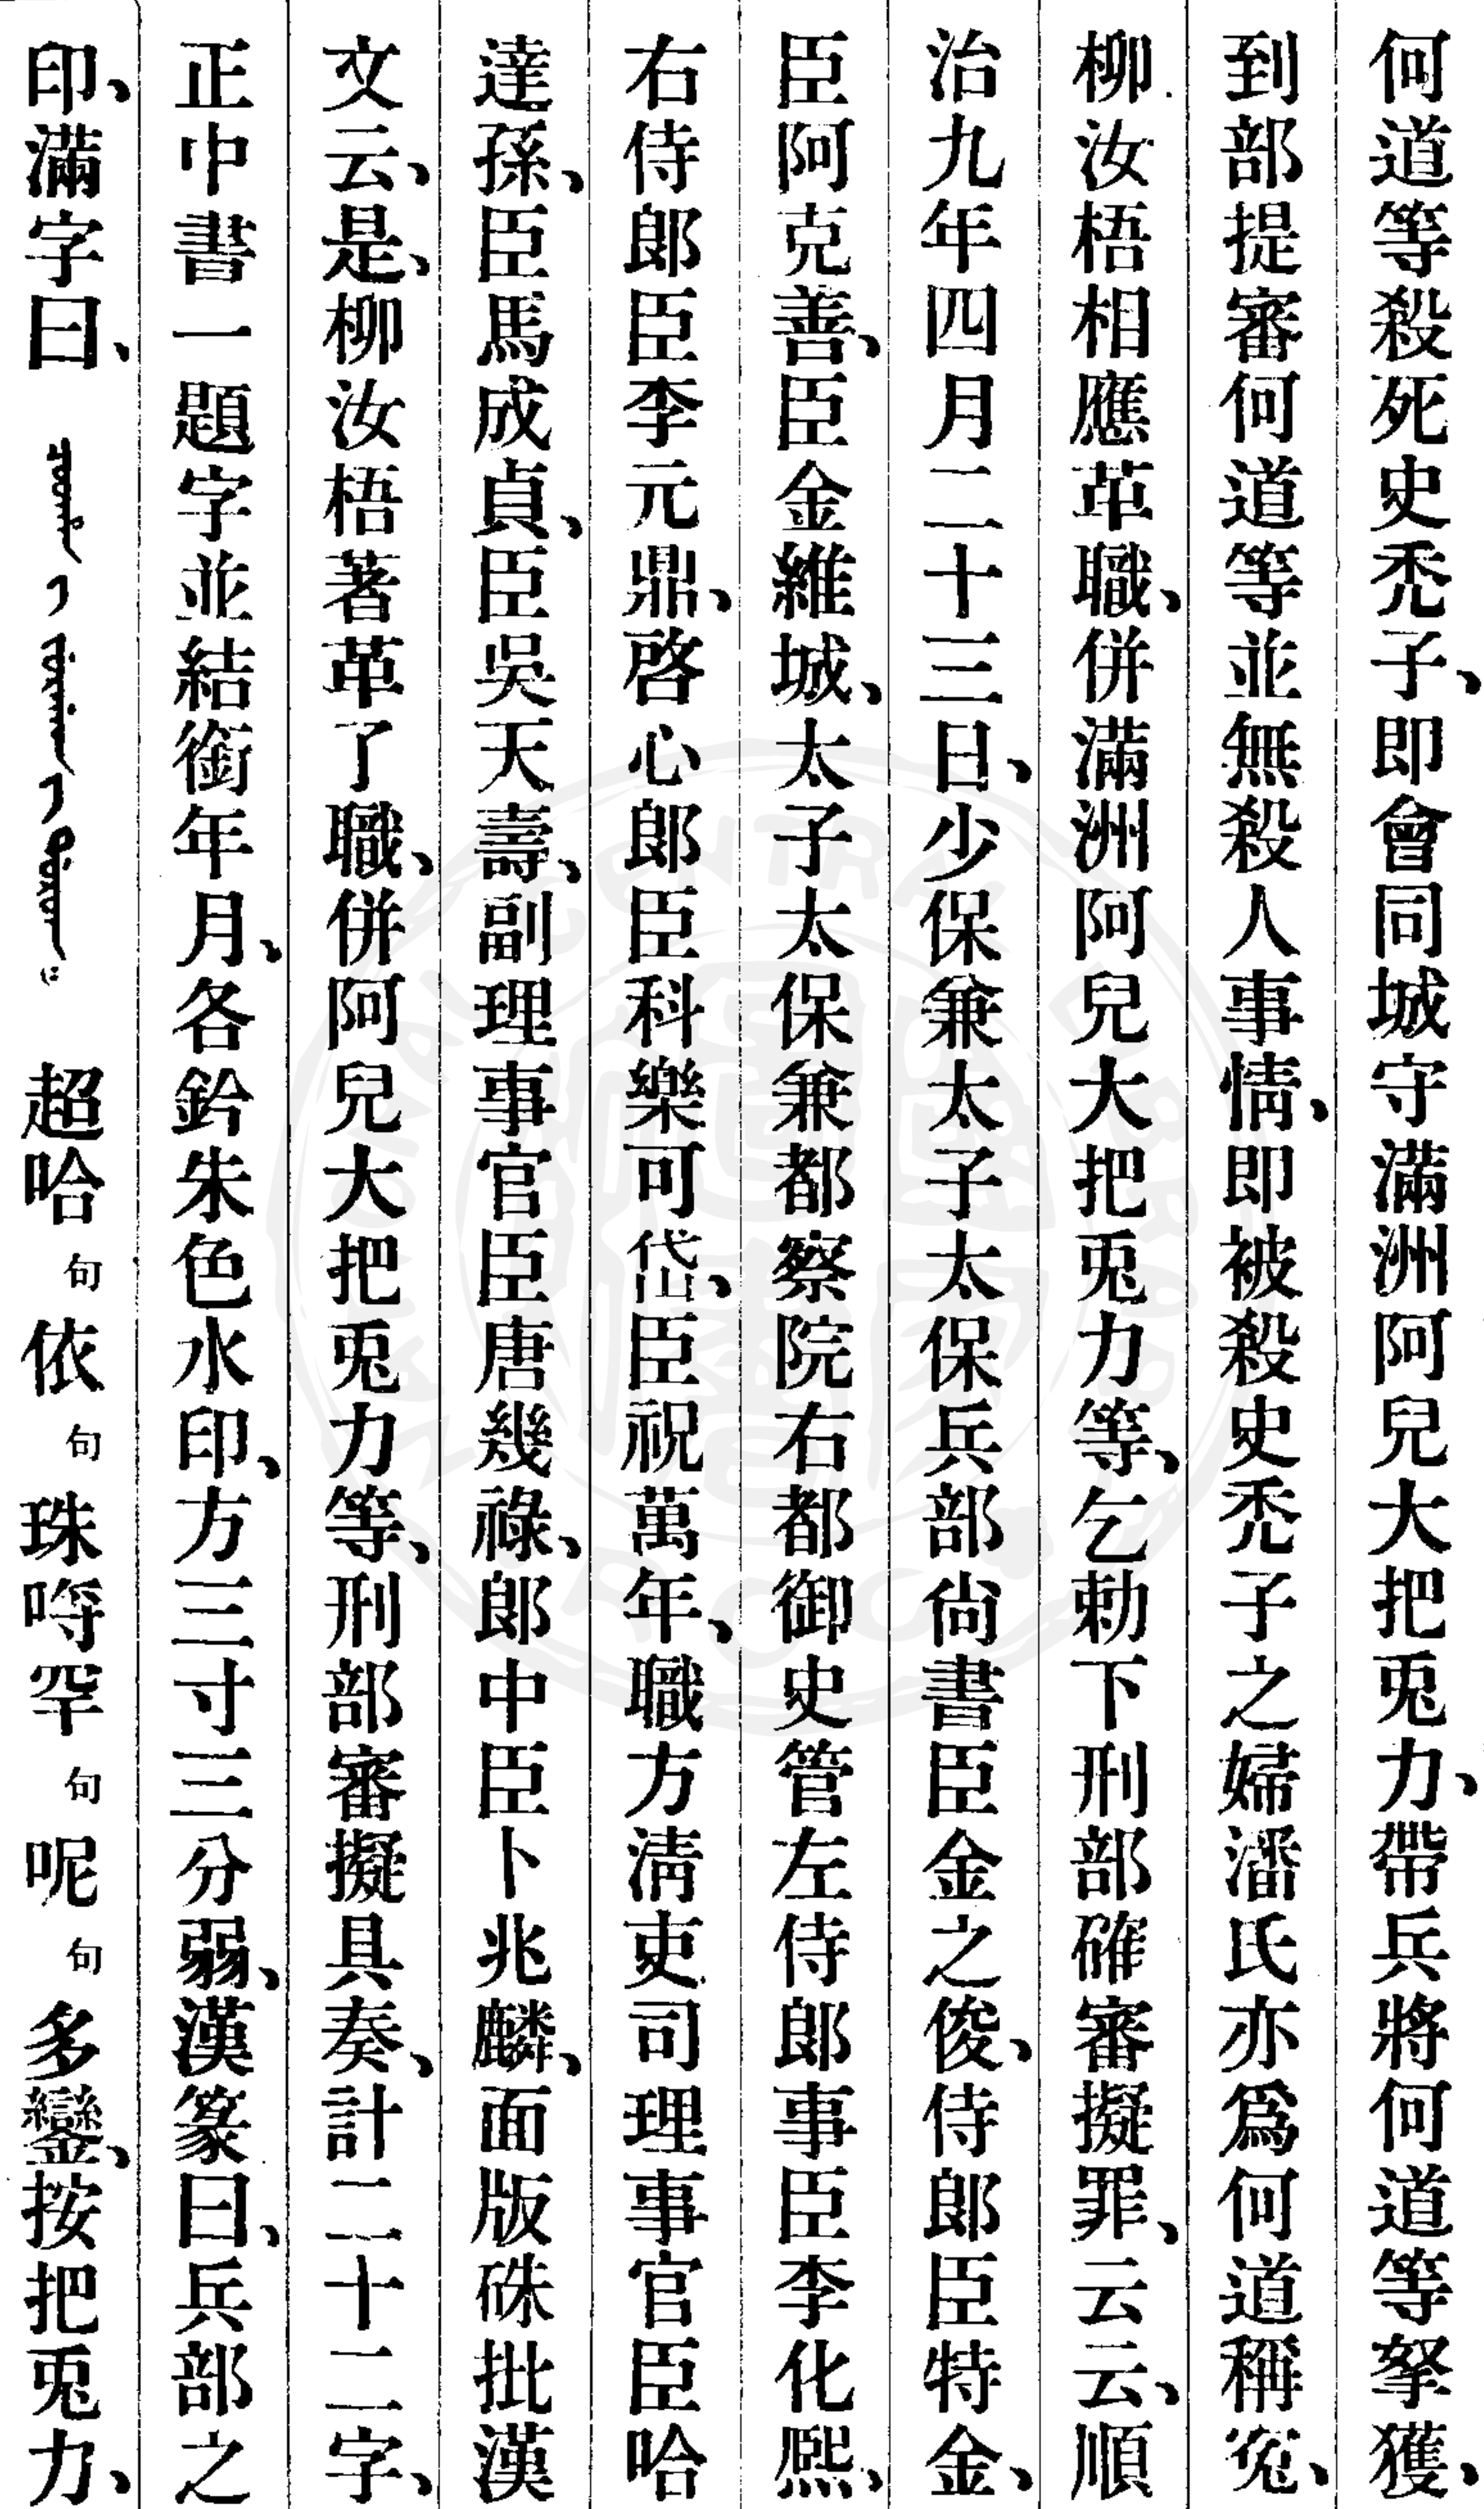 何道等殺死史禿子、即會同城守滿洲阿兒大把兎力、帶兵將何道等拏獲、
到部提審何道等並無殺人事情、即被殺史禿子之婦潘氏亦爲何道稱寃、
柳汝梧相應革職、併滿洲阿兒大把兎力等、乞勅下刑部確審擬罪、云云、順
治九年四月二十三日、少保兼太子太保兵部尙書臣金之俊、侍郎臣特金、
臣阿克善、臣金維城、太子太保兼都察院右都御史管左侍郎事臣李化熙、
右侍郎臣李元鼎、啓心郎臣科樂可岱、臣祝萬年、職方淸吏司理事官臣哈
達孫、臣馬成貞、臣吳天壽、副理事官臣唐幾祿、郎中臣卜兆麟、面版硃批漢
文云、是、柳汝梧著革了職、併阿兒大把兎力等、刑部審擬具奏、計二十二字、
正中書一題字並結銜年月、各鈐朱色水印、方三寸三分弱、漢篆曰、兵部之
印、滿字曰、超哈句依句珠哷罕句呢句多鑾、按把兎力、